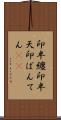 印半纏印半
天印ばんて
ん